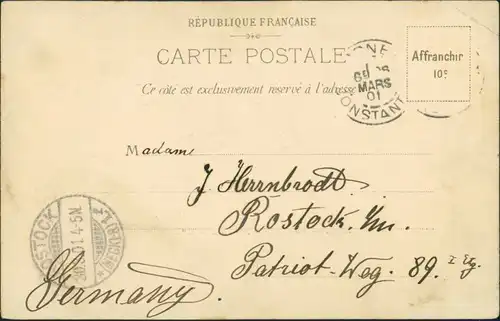 RÉPUBLIQUE FRANÇAISE
CARTE POSTALE
Ce côté est exclusivement reservé à l'adresse
Affranchir
10c
MARS
01
CONSTANT
Madame
J Herrnbrodt
Rostock i/m.
Patriot-Weg. 89. I Etg.
Germany.
ROSTOCK
01.4-5N.